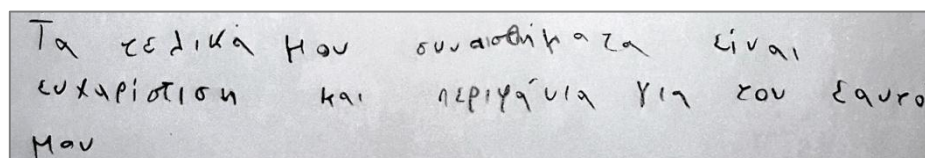 Τα τελικά μου συναισθήματα είναι
ευχαρίστιση και περιφάνια για τον εαυτο
μου